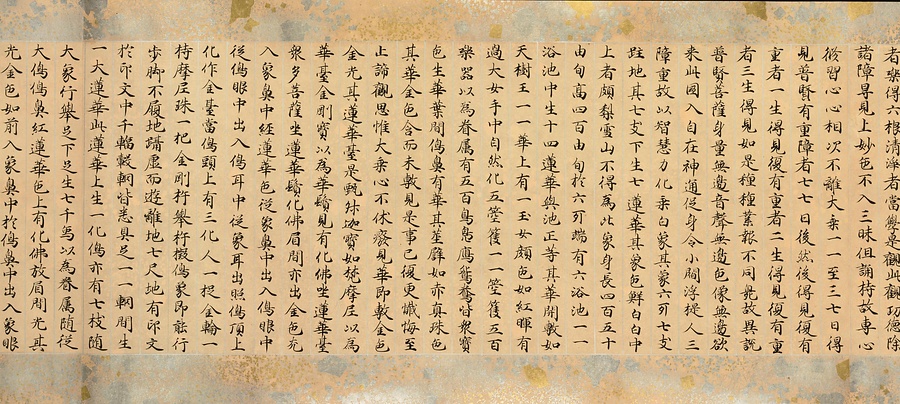 者樂得六根清淨者當學是觀此觀功德除
諸障㝵見上妙色不入三昧但誦持故專心
脩習心心相次不離大乘一一至三七日得
見普賢有重障者七七日後然後得見復有
重者一生得見復有重者二生得見復有重
者三生得見如是種種業報不同是故異說
普賢菩薩身量無邊音聲無邊色像無邊欲
來此國入自在神通促身令小閻浮提人三
障重故以智慧力化乘白象其象六牙七支
跓地其七支下生七蓮華其象色鮮白白中
上者頗梨雪山不得為比象身長四百五十
由旬高四百由旬於六牙端有六浴池一一
浴池中生十四蓮華與池正等其華開敷如
天樹王一一華上有一玉女顏色如紅暉有
過天女手中自然化五箜篌一一箜篌五百
樂器以為眷属有五百鳥鳧鴈鴛鴦皆眾寶
色生華葉間象鼻有華其莖譬如赤真珠色
其華金色含而未敷見是事已復更懺悔至
心諦觀思惟大乘心不休癈見華即敷金色
金光其蓮華臺是甄叔迦寶妙梵摩尼以為
華臺金剛寶以為華鬚見有化佛坐蓮華臺
眾多菩薩坐蓮華鬚化佛眉間亦出金色光
入象鼻中經蓮華色從象鼻中出入象眼中
從象眼中出入象耳中從象耳出照象頂上
化作金臺當象頭上有三化人一捉金輪一
持摩尼珠一把金剛杵舉杵擬象象即能行
步脚不履地躡虛而遊離地七尺地有印文
於印文中千輻轂輞皆悉具足一一輞間生
一大蓮華此蓮華上生一化象亦有七枝随
大象行舉足下足生七千象以為眷属随從
大象象鼻紅蓮華色上有化佛放眉間光其
光金色如前入象鼻中於象鼻中出入象眼